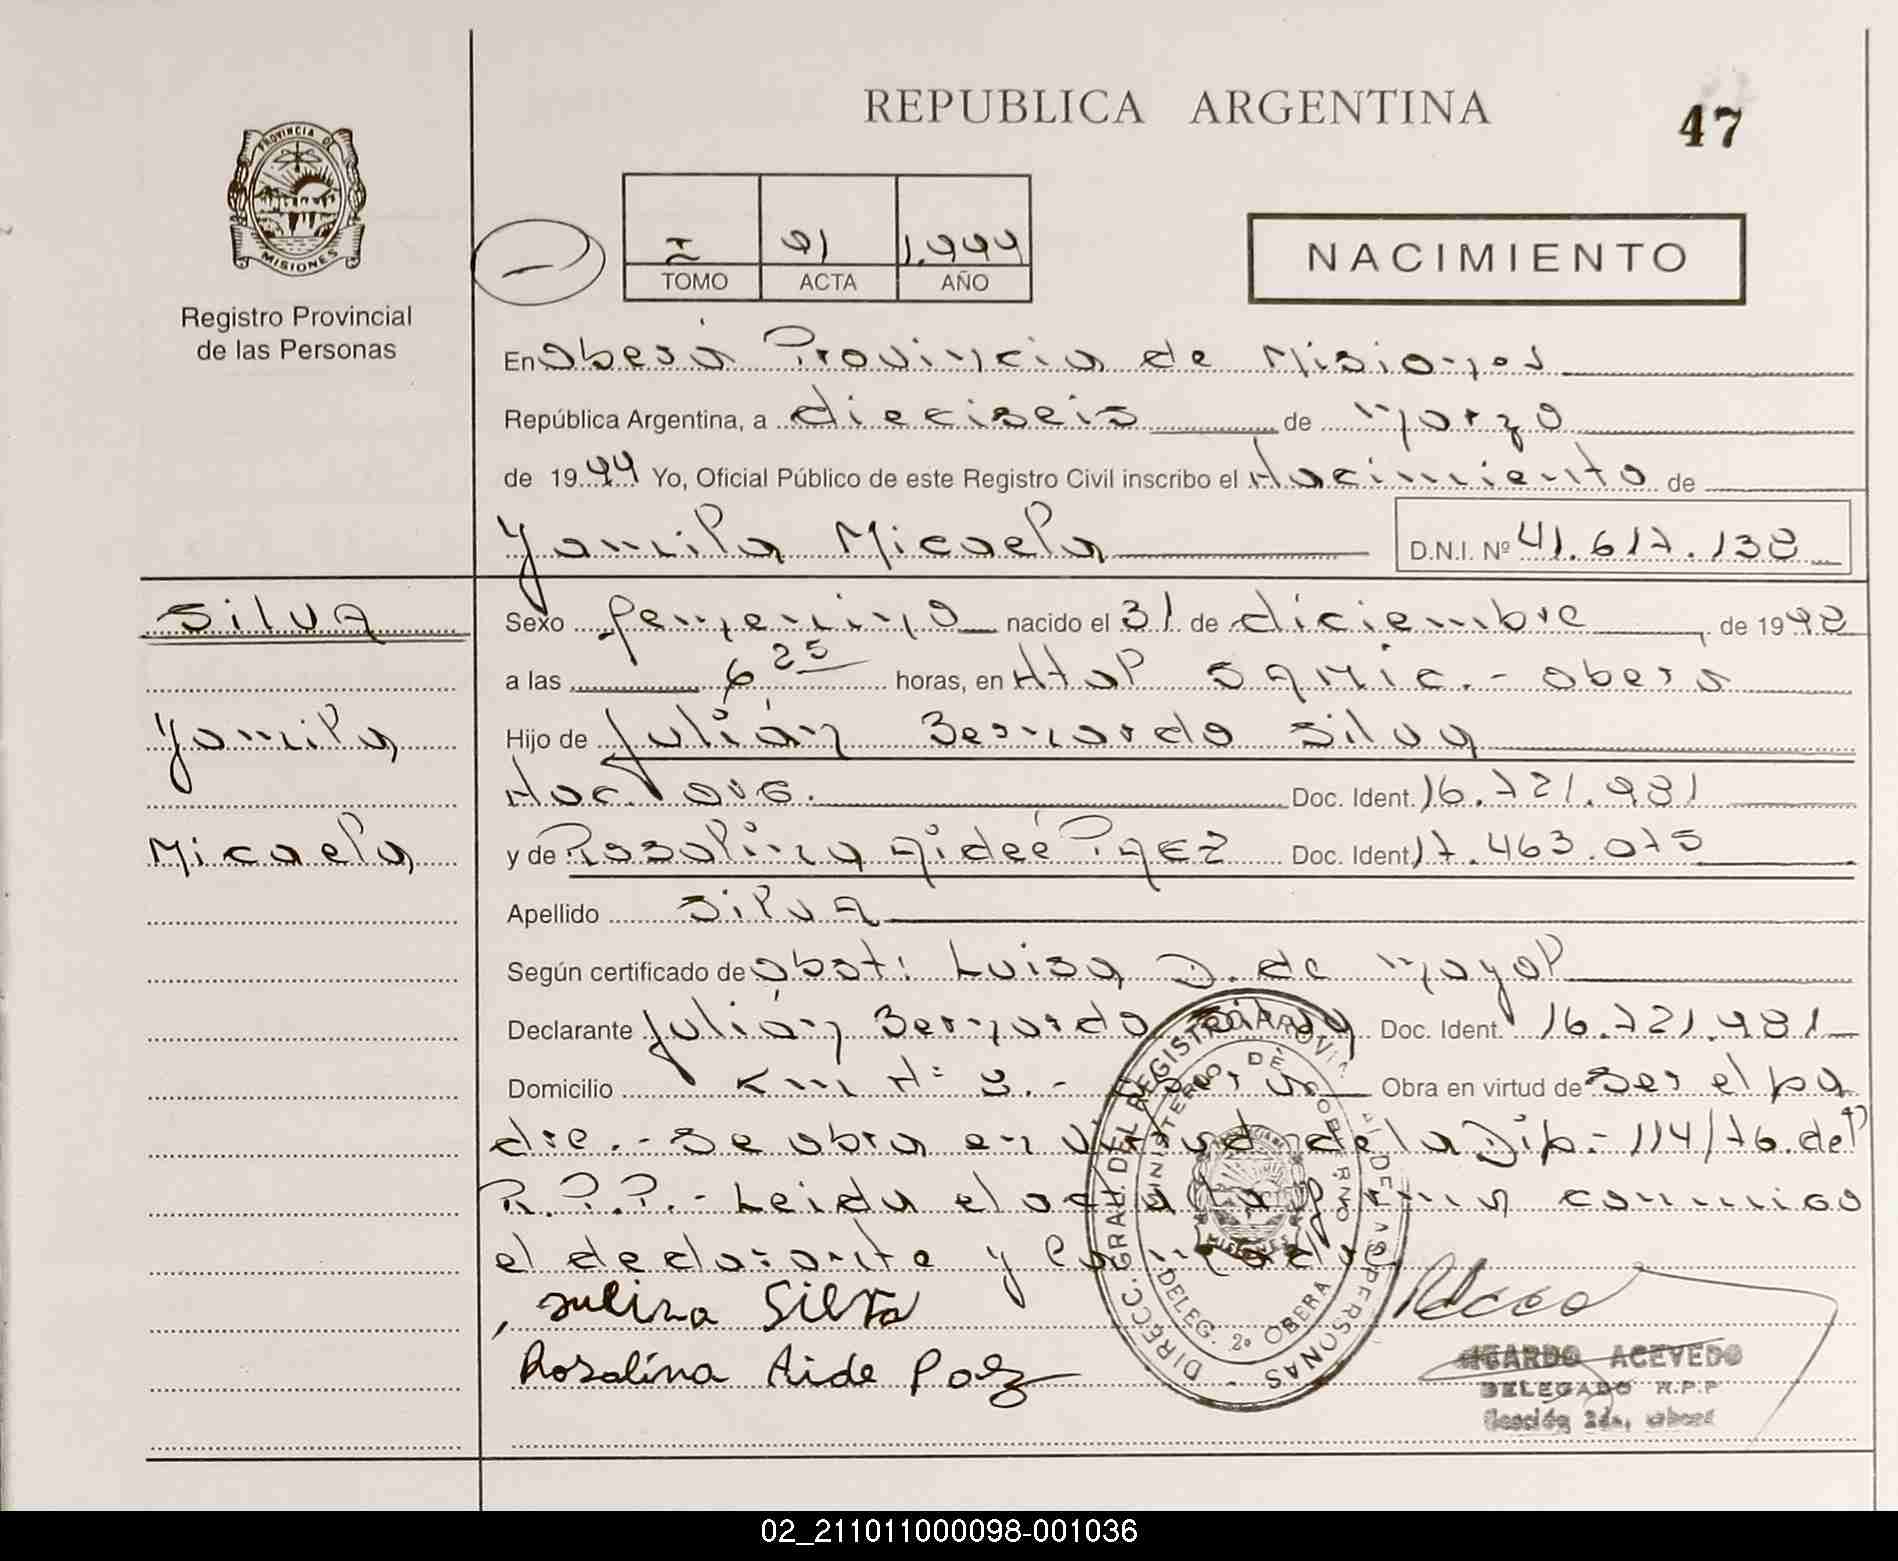 REPUBLICA ARGENTINA
47
PROVINCIA DE
MISIONES
Registro Provincial
de las Personas
I 91 1.999
TOMO ACTA AÑO
NACIMIENTO
En Oberá Provincia de Misiones
República Argentina, a dieciseis de marzo
de 1999 Yo, Oficial Público de este Registro Civil inscribo el Nacimiento de
Yamila Micaela D.N.I. Nº 41.617.138
Silva
Yamila
Micaela
Sexo femenino nacido el 31 de diciembre de 1998
a las 6 25 horas, en Htal SAMIC.- Oberá
Hijo de Julián Bernardo Silva
Nac. arg. Doc. Ident. 16.721.981
y de Rosalina Aideé Paez Doc. Ident. 17.463.075
Apellido Silva
Según certificado de Obst: Luisa D. de Mayol
Declarante Julián Bernardo Silva Doc. Ident. 16.721.981
Domicilio Km Nº 3.- Oberá Obra en virtud de Ser el pa
dre.- Se obra en virtud de la Dip.- 114/76 del
R.P.P.- Leida el acta la firman conmigo
el declarante y
Silva
Rosalina Aide Paez
DIRECC. GRAL. DEL REGISTRO PROVINCIAL DE LAS PERSONAS
MINISTERIO DE GOBIERNO
DELEG. 2º OBERA
RICARDO ACEVEDO
DELEGADO R.P.P
Sección 2da, Oberá
02_211011000098-001036